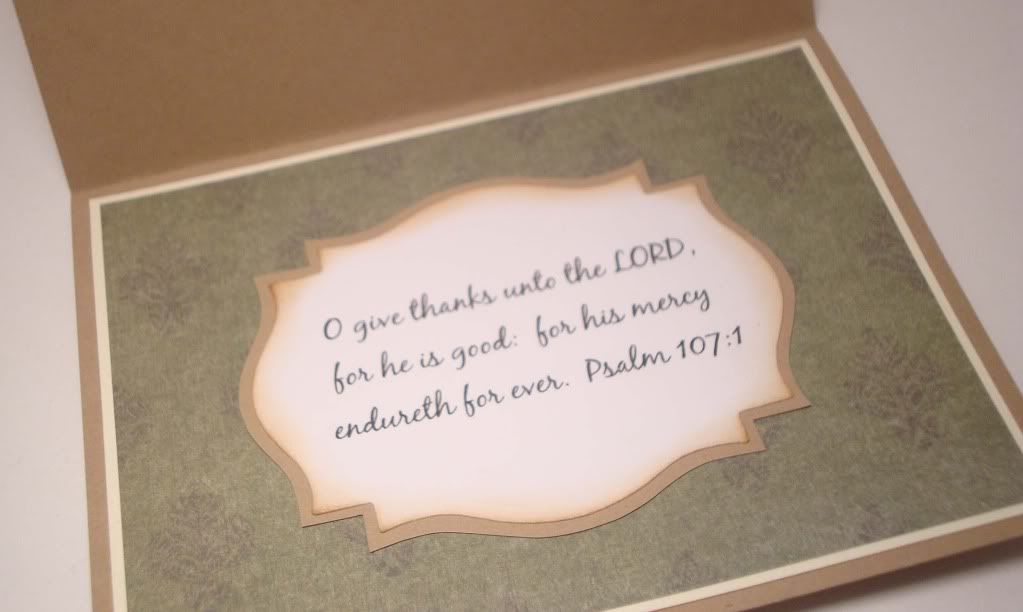 O give thanks unto the LORD,
for he is good: for his mercy
endureth for ever. Psalm 107:1